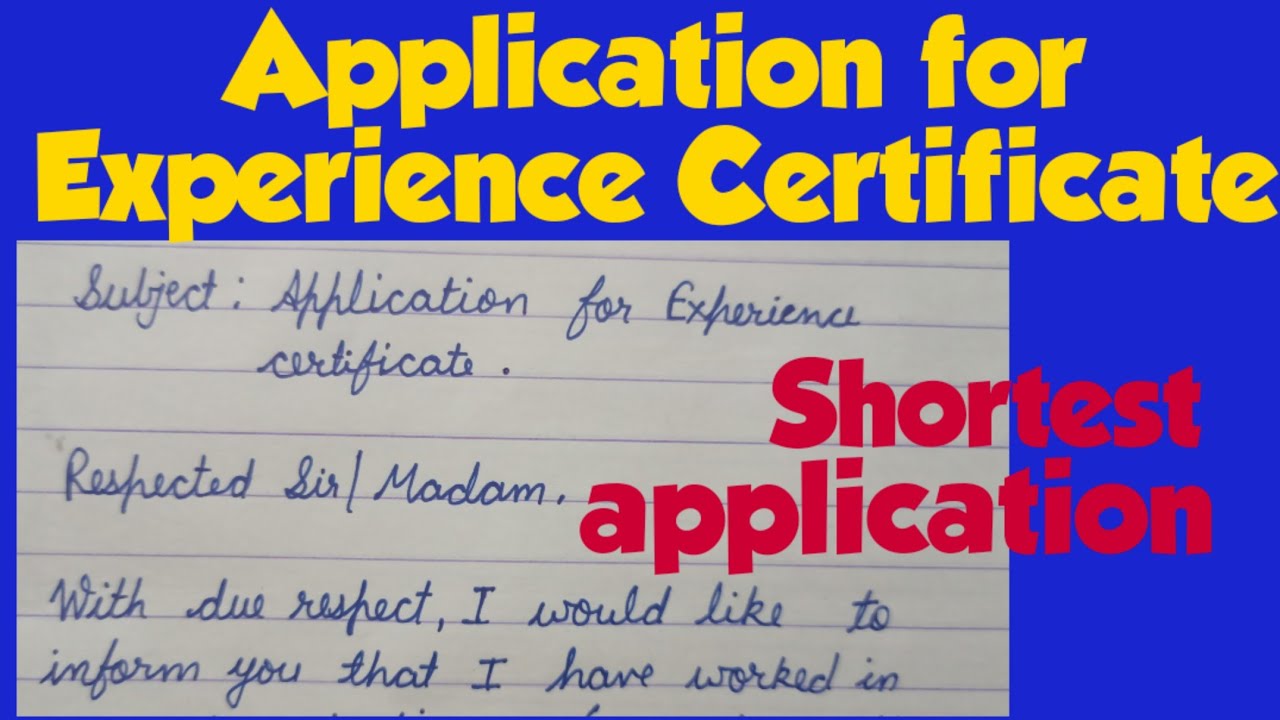 Application for
Experience Certificate
Subject: Application for Experience
certificate.
Shortest
Respected Sir/Madam.
application
With due respect, I would like to
inform you that I have worked in